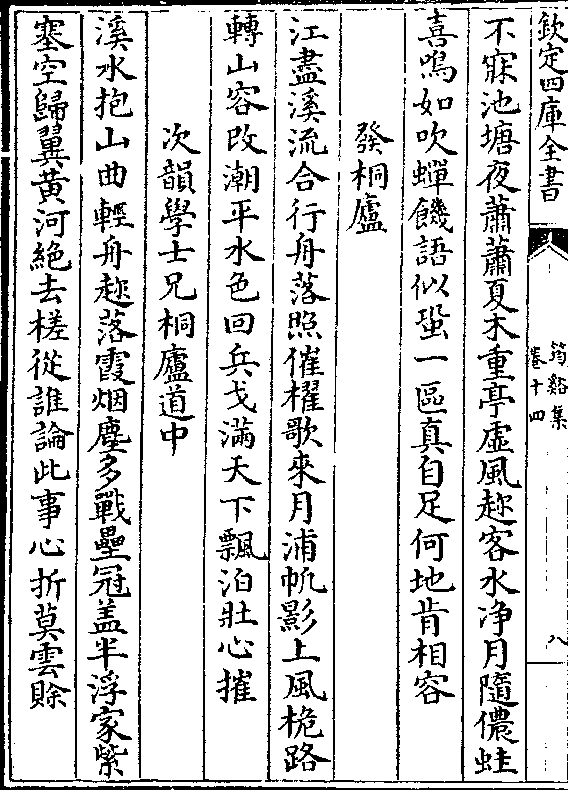 欽定四庫全書
筠谿集
卷十四
八
不寐池塘夜蕭蕭夏木重亭虛風趂客水净月隨儂蛙
喜鳴如吹蟬饑語似蛩一區真自足何地肯相容
發桐廬
江盡溪流合行舟落照催櫂歌來月浦帆影上風桅路
轉山容改潮平水色回兵戈滿天下飄泊壯心摧
次韻學士兄桐廬道中
溪水抱山曲輕舟趂落霞烟塵多戰壘冠盖半浮家紫
塞空歸翼黄河絶去槎從誰論此事心折莫雲賖